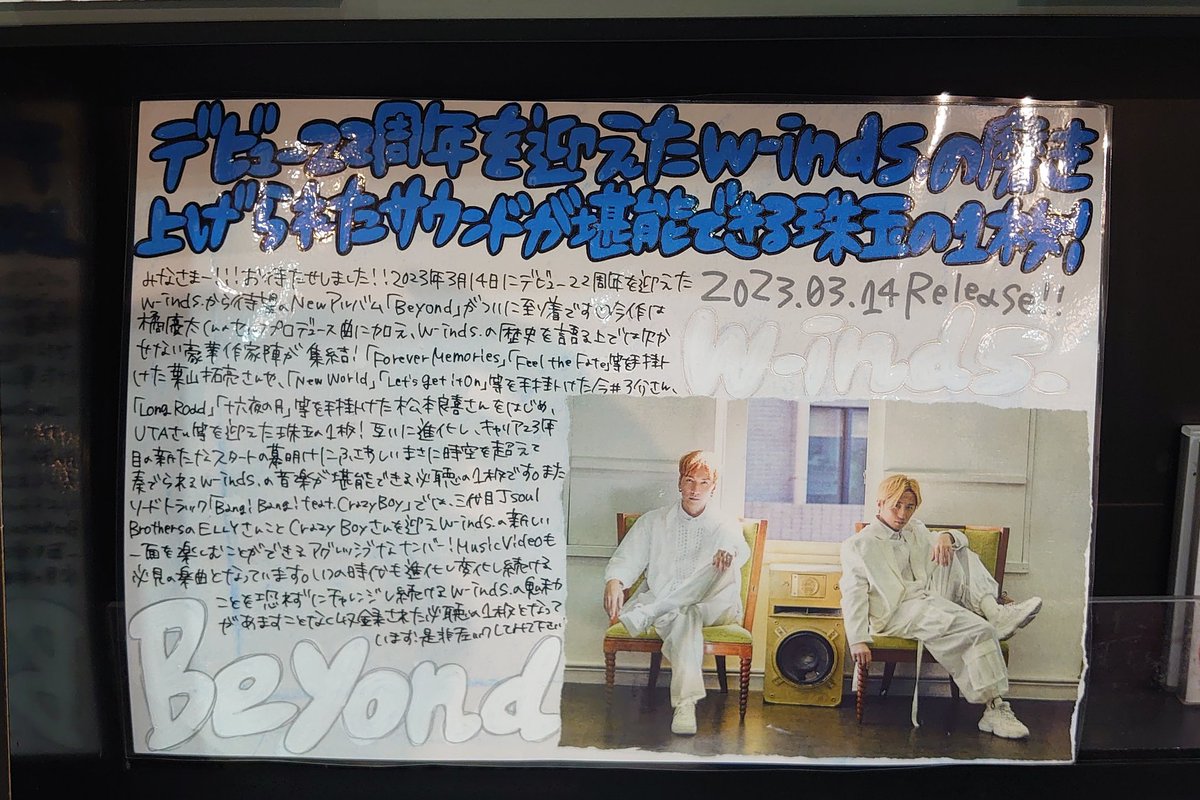 デビュー22周年を迎えたw-inds.の磨き
上げられたサウンドが堪能できる珠玉の1枚!
2023.03.14 Release!!
w-inds.
みなさまー!!!お待たせしました!!2023年3月14日にデビュー22周年を迎えた
w-inds.から待望のNewアルバム「Beyond」がついに到着です。今作は
橘慶太くんのセルフプロデュース曲に加え、w-inds.の歴史を語る上では欠か
せない豪華作家陣が集結!「Forever Memories」,「Feel the Fate」等を手掛
けた葉山拓亮さんや、「New World」「Let's get it On」等を手掛けた今井了介さん、
「Long Road」「十六夜の月」等を手掛けた松本良喜さんをはじめ、
UTAさん等を迎えた珠玉の1枚!互いに進化し、キャリア23年
目の新たなスタートの幕明けにふさわしいまさに時空を超えて
奏でられるw-inds.の音楽が堪能できる必聴の1枚です。また
リードトラック「Bang! Bang! feat. CrazyBoy」では、三代目J soul
BrothersのELLYさんことCrazy Boyさんを迎えw-inds.の新しい
一面を楽しむことができるアグレッシブなナンバー!Music Videoも
必見の楽曲となっています。いつの時代も進化し変化し続ける
ことを恐れずにチャレンジし続けるw-inds.の魅力
があますことなく収録された必聴の1枚となって
います!是非在ってみて下さい
Beyond